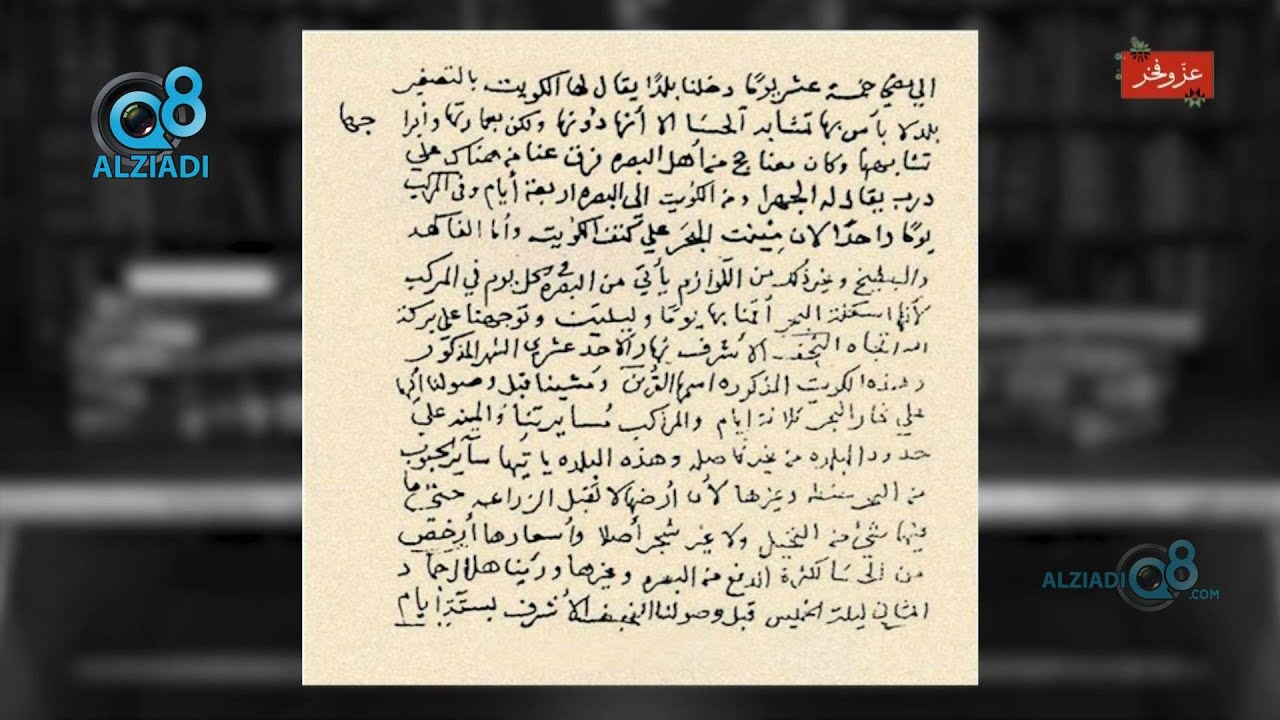 ALZIADI
Q8
عز وفخر
دخلنا بلدًا يقال لها الكويت بالتصغير
بلد لا بأس بها تشابه الحسا الا أنها دونها ولكن بعمارتها وأبرا جها
تشابهها وكان معنا حج من أهل البصره فرق عنا من هناك على
درب يقال له الجهرا ومن الكويت الى البصره اربعة أيام وفي المركب
يومًا واحدًا لان مينت البحر على كتف الكويت وأما الفاكهه
والبطيخ وغير ذلك من اللوازم يأتي من البصره في كل يوم في المركب
لأنها اسكلة البحر أقمنا بها يومًا وليلتين وتوجهنا على بركة
الله اتجاه النجف الأشرف نهار الأحد عشرى الشهر المذكور
وهذه الكويت المذكوره اسمها القرين ومشينا قبل وصولنا اليها
على البحر ثلاثة ايام والمراكب مسايرتنا والمينه على
حدود البلده من غير فاصله وهذه البلده يأتيها سائر الحبوب
من البحر حنطه وغيرها لأن أرضها لا تقبل الزراعه حتى ما
فيها شئ من النخيل ولا غير شجر أصلا وأسعارها أرخص
من الحسا لكثرة الدفع من البصره وغيرها ورئينا هلال جماد
الثاني ليلة الخميس قبل وصولنا النجف الأشرف بستة ايام
ALZIADI Q8 .COM